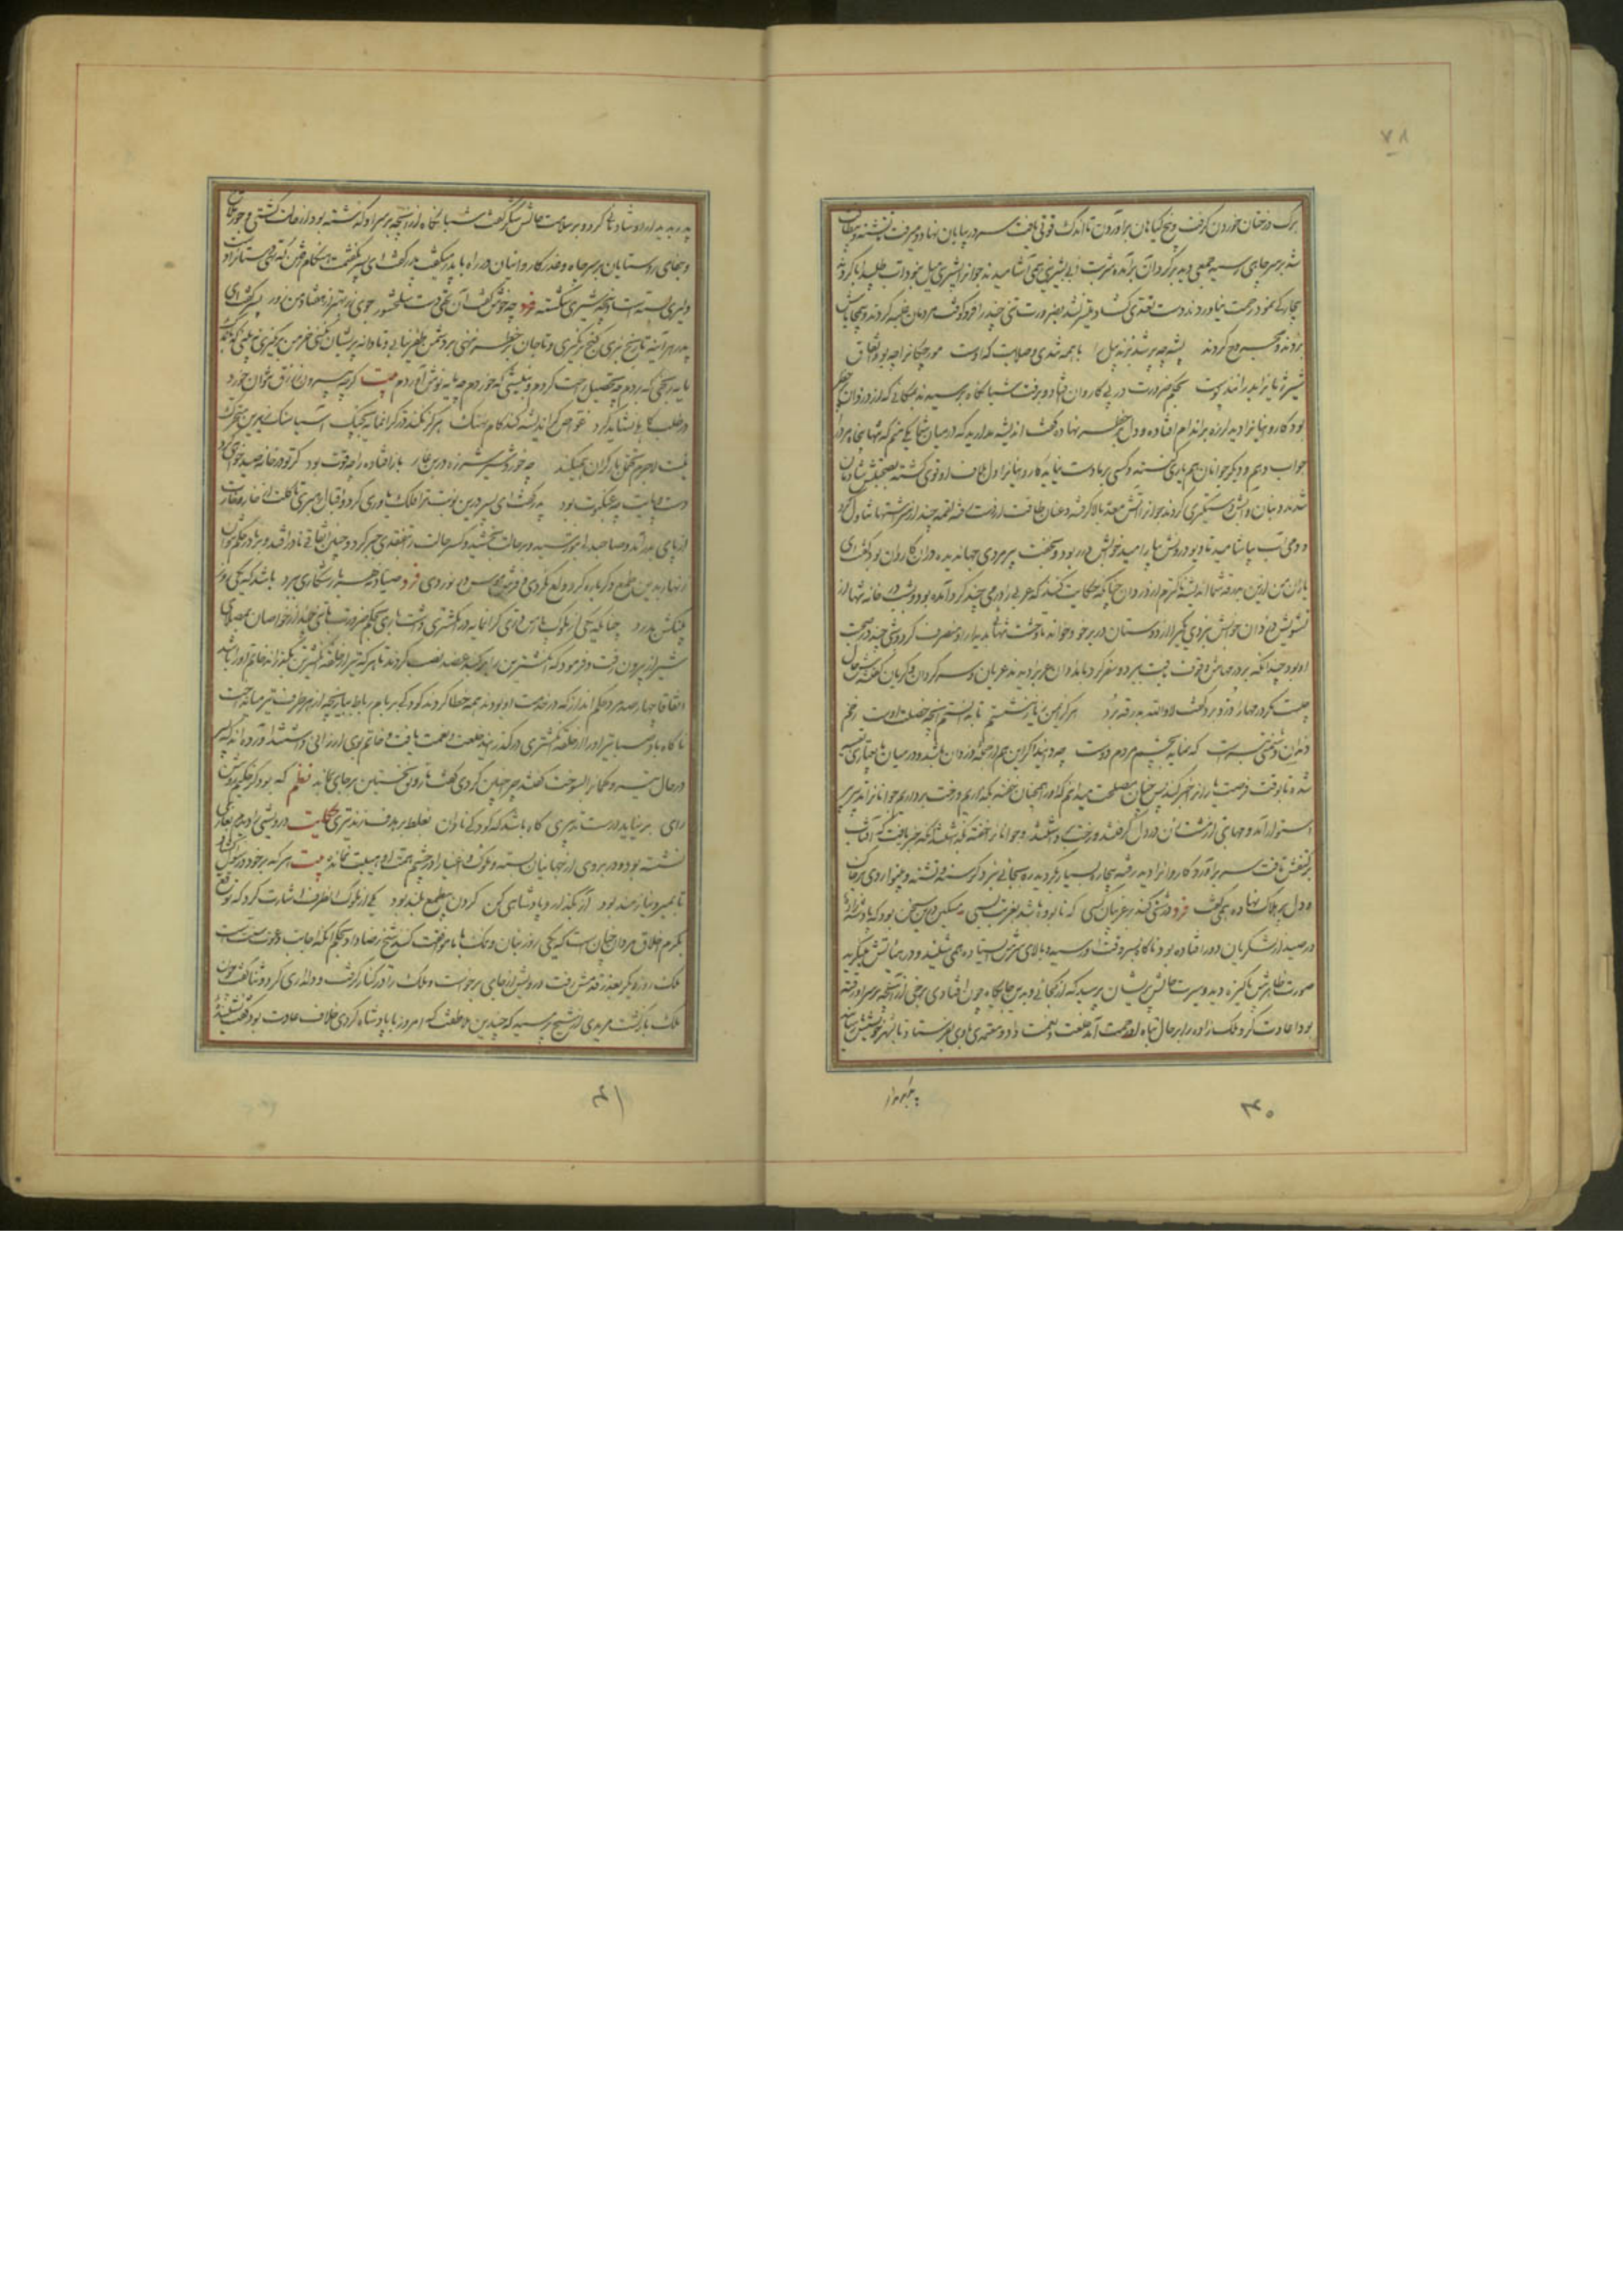 ۷۸
برگ درختان خوردن گرفت و بیخ گیاهان برآوردن تا اندک قوتی یافت سر در بیابان نهاد و میرفت تا تشنه و بیطاقت
شد بر سر چاهی رسید جمعی دید برو گرد آمده شربت آبی به پشیزی همی آشامیدند جوانرا پشیزی نبود آب طلبید ابا کردند
بیچارگی نمود رحمت نیاوردند دست تعدی گشاد میسر نشد بضرورت تنی چند را فرو کوفت مردمان غلبه کردند و بیمحابا بزدند
و مجروح کردند پشه چو پر شد بزند پیل را با همه تندی و صلابت که اوست مورچگانرا چو بود اتفاق
شیر ژیانرا بدرانند پوست بحکم ضرورت در پی کاروان افتاد و برفت شبانگاه برسیدند بمکانی که از دزدان خطر
بود کاروانیانرا دید لرزه بر اندام افتاده و دل بر خطر نهاده گفت اندیشه مدارید که درمیان شما یکی منم که تنها پنجاه مرد را
جواب دهم و دیگر جوانان هم یاری کنند
شدند و بنان و آبش دستگیری کردند جوانرا آتش معده بالا گرفته و عنان طاقت از دست رفته لقمه چند از سر اشتها تناول کرد
و دمی آب بیاشامید تا دیو درونش بیارامید خوابش در ربود و بخفت پیرمردی جهاندیده در آن کاروان بود گفت ای
یاران من ازین بدرقه شما اندیشناکترم از دزدان چنانکه حکایت کنند که عربی را درمی چند گرد آمده بود و شب در خانه تنها از
تشویش دزدان خوابش نبردی یکی را از دوستان در بر خود خواند تا وحشت تنهائی بدیدار او منصرف کرد و شبی چند در صحبت
او بود چندانکه بر درمهاش وقوف یافت ببرد و سفر کرد بامدادان عرب را دیدند عریان و سرگردان و گریان گفتند حال
چیست مگر درمهای ترا دزد برد گفت لا والله بدرقه برد هرگز ایمن ز یار ننشستم تا بدانستم آنچه خصلت اوست زخم
دندان دشمنی بترست که نماید بچشم مردم دوست چه دانید اگر این هم از جمله دزدان باشد و در میان ما بعیاری تعبیه
شده تا بوقت فرصت یارانرا خبر کند پس چنان مصلحت میدانم که او را همچنان خفته بگذاریم و رخت برداریم جوانانرا تدبیر پیر
استوار آمد و مهابتی از مشت زن در دل گرفتند و رخت برداشتند و جوانرا خفته بگذاشتند آنگه خبر یافت که آفتاب
بر کتفش تافت سر برآورد کاروانرا دید رفته بیچاره بسیار بگردید ره بجائی نبرد گرسنه و تشنه و بینوا روی بر خاک
و دل بر هلاک نهاده همی گفت فرد درشتی کند بر غریبان کسی که نابوده باشد بغربت بسی مسکین درین سخن بود که پادشه زاده
در صید از لشکریان دور افتاده بود ناگاه بسر وقت او رسید و بالای سرش ایستاده همی شنید و در هیأتش میگردید
صورت ظاهرش پاکیزه دید و سیرت حالش پریشان پرسید که از کجائی و بدین جایگاه چون افتادی برخی از آنچه بر سر او رفته
بود اعادت کرد ملک زاده را بر حال تباه او رحمت آمد خلعت و نعمت داد و معتمدی با وی بفرستاد تا بشهر خویش رسانید
۴۰
پدر بدیدار او شادمانی کرد و بر سلامت حالش شکر گفت شبانگاه از آنچه بر سر او گذشته بود از حالت کشتی و جور ملاح
و جفای روستایان بر سر چاه و غدر کاروانیان در راه با پدر میگفت پدر گفت ای پسر نگفتمت هنگام رفتن که تهی دستانرا دست
دلیری بسته است و پنجه شیری شکسته فرد چه خوش گفت آن تهی دست سلحشور جوی زر بهتر از هفتاد من زور پسر گفت ای
پدر هر آینه تا رنج نبری گنج برنگیری و تا جان بر خطر ننهی بر دشمن ظفر نیابی و تا دانه پریشان نکنی خرمن برنگیری نه بینی که
پایه رنجی که بردم چه تحصیل راحت کردم و نیشی که خوردم چه مایه نوش آوردم بیت گرچه بیرون ز رزق نتوان خورد
در طلب کاهلی نشاید کرد غواص گر اندیشه کند کام نهنگ هرگز نکند در گرانمایه بچنگ آسیا سنگ زیرین متحرک
نیست لاجرم تحمل بار گران همیکند چه خورد شیر شرزه در بن غار باز افتاده را چه قوت بود گر تو در خانه صید خواهی کرد
دست و پایت چو عنکبوت بود پدر گفت ای پسر درین نوبت ترا فلک یاوری کرد و اقبال رهبری تا گلت از خار و خارت
از پای بدر آمد و صاحبدولتی بتو رسید و بر حالت ببخشید و کسر حالت را بتفقدی جبر کرد و چنین اتفاق نادر افتد و بر نادر حکم نتوان کرد
زنهار بدین طمع دگرباره گرد ولع نگردی فرد صیاد نه هر بار شکاری ببرد باشد که یکی روز
پلنگش بدرد چنانکه یکی از ملوک پارس نگینی گرانمایه در انگشتری داشت باری بحکم تفرج با تنی چند از خواصان بمصلای
شیراز بیرون رفت و فرمود که انگشترین را بر گنبد عضد نصب کردند تا هر که تیر از حلقه انگشترین بگذراند خاتم او را باشد
اتفاقا چهارصد مرد حکم انداز که در خدمت او بودند همه خطا کردند کودکی بر بام رباط ببازیچه از هر طرف تیر میانداخت
ناگاه باد صبا تیر او را از حلقه انگشتری در گذرانید خلعت و نعمت یافت و خاتم بوی ارزانی داشتند آورده اند که پسر
در حال تیر و کمانرا بسوخت گفتند چرا چنین کردی گفت تا رونق نخستین بر جای بماند نظم گه بود کز حکیم روشن
رای بر نیاید درست تدبیری گاه باشد که کودکی نادان بغلط بر هدف زند تیری حکایت درویشی را دیدم بغاری
نشسته بود و در بروی از جهانیان بسته و ملوک و اغنیا را در چشم همت او هیبت نمانده بیت هر که بر خود در سؤال گشاد
تا بمیرد نیازمند بود آز بگذار و پادشاهی کن گردن بی طمع بلند بود یکی از ملوک آنطرف اشارت کرد که توقع
بکرم اخلاق مردان چنان است که یکروز بنان و نمک با ما موافقت کنند شیخ رضا داد بحکم آنکه اجابت دعوت سنت است
ملک روز دیگر بعذر قدومش رفت درویش از جای برخواست و ملک را در کنار گرفت و دلداری کرد و ثنا گفت چون
ملک بازگشت مریدی از شیخ پرسید که چندین ملاطفت که امروز با پادشاه کردی خلاف عادت بود گفت نشنیدهٔ
۴۱